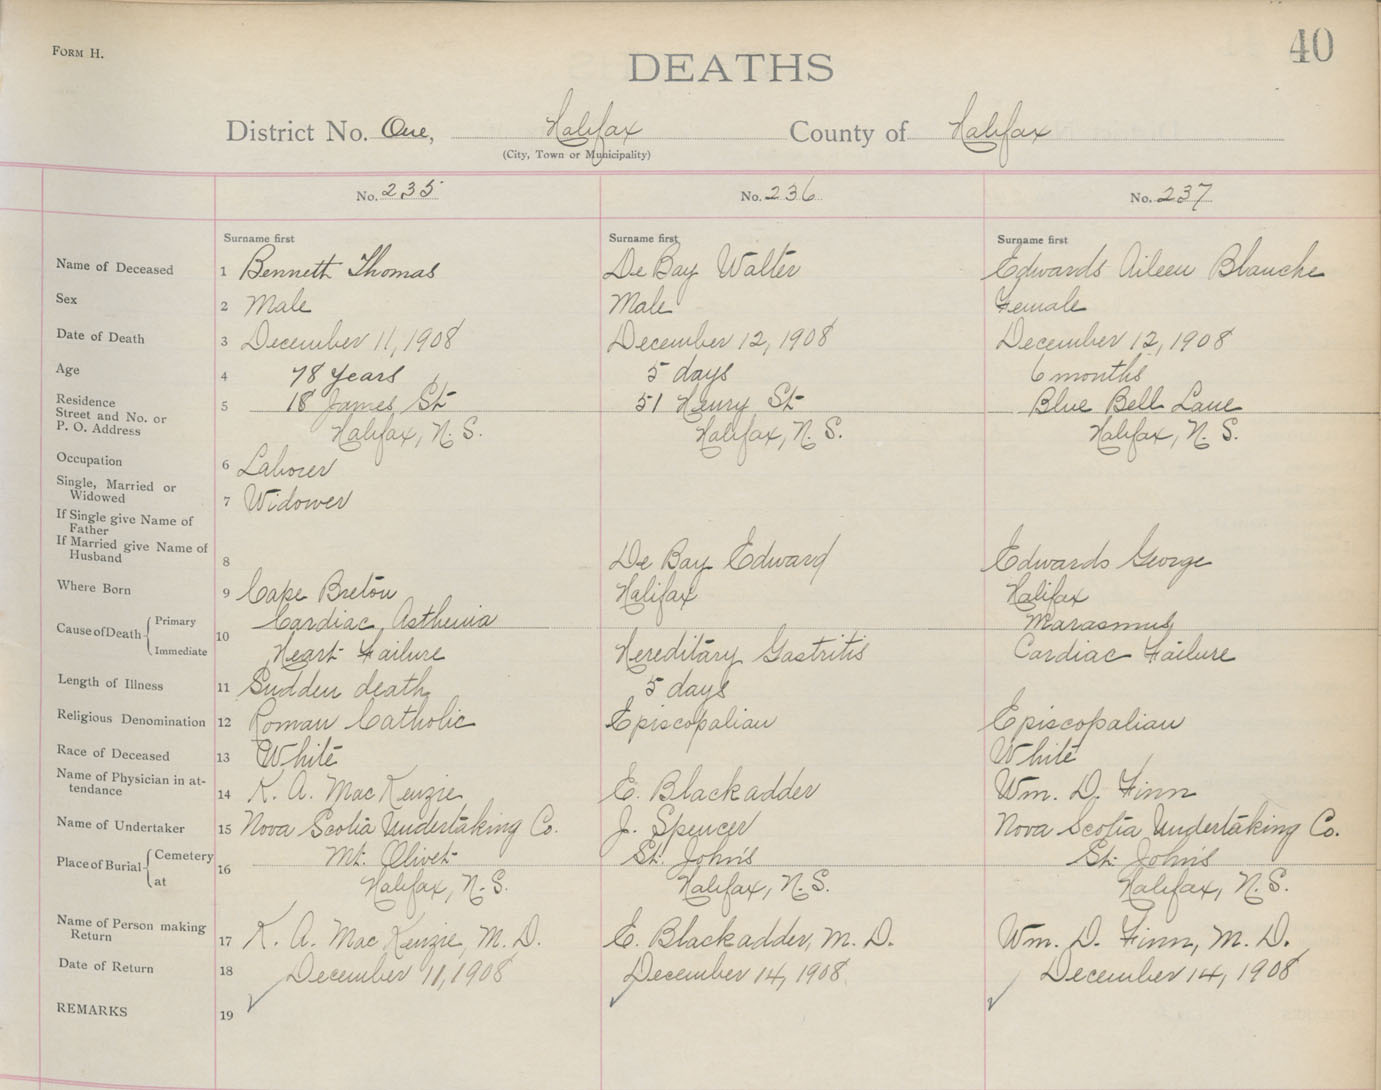 FORM H.
40
DEATHS
District No. One, Halifax County of Halifax
(City, Town or Municipality)
No. 235 No. 236 No. 237
Surname first Surname first Surname first
Name of Deceased 1 Bennett Thomas De Bay Walter Edwards Aileen Blanche
Sex 2 Male Male Female
Date of Death 3 December 11, 1908 December 12, 1908 December 12, 1908
Age 4 78 years 5 days 6 months
Residence
Street and No. or 5 18 James St 51 Henry St Blue Bell Lane
P. O. Address Halifax, N. S. Halifax, N. S. Halifax, N. S.
Occupation 6 Laborer
Single, Married or
Widowed 7 Widower
If Single give Name of
Father
If Married give Name of
Husband 8 De Bay Edward Edwards George
Where Born 9 Cape Breton Halifax Halifax
Cause of Death Primary 10 Cardiac Asthenia Marasmus
Immediate Heart Failure Hereditary Gastritis Cardiac Failure
Length of Illness 11 Sudden death 5 days
Religious Denomination 12 Roman Catholic Episcopalian Episcopalian
Race of Deceased 13 White White
Name of Physician in at-
tendance 14 K. A. MacKenzie E. Blackadder Wm. D. Finn
Name of Undertaker 15 Nova Scotia Undertaking Co. J. Spencer Nova Scotia Undertaking Co.
Place of Burial Cemetery 16 Mt. Olivet St. John's St. John's
at Halifax, N. S. Halifax, N. S. Halifax, N. S.
Name of Person making
Return 17 K. A. MacKenzie, M. D. E. Blackadder, M. D. Wm. D. Finn, M. D.
Date of Return 18 December 11, 1908 December 14, 1908 December 14, 1908
REMARKS 19